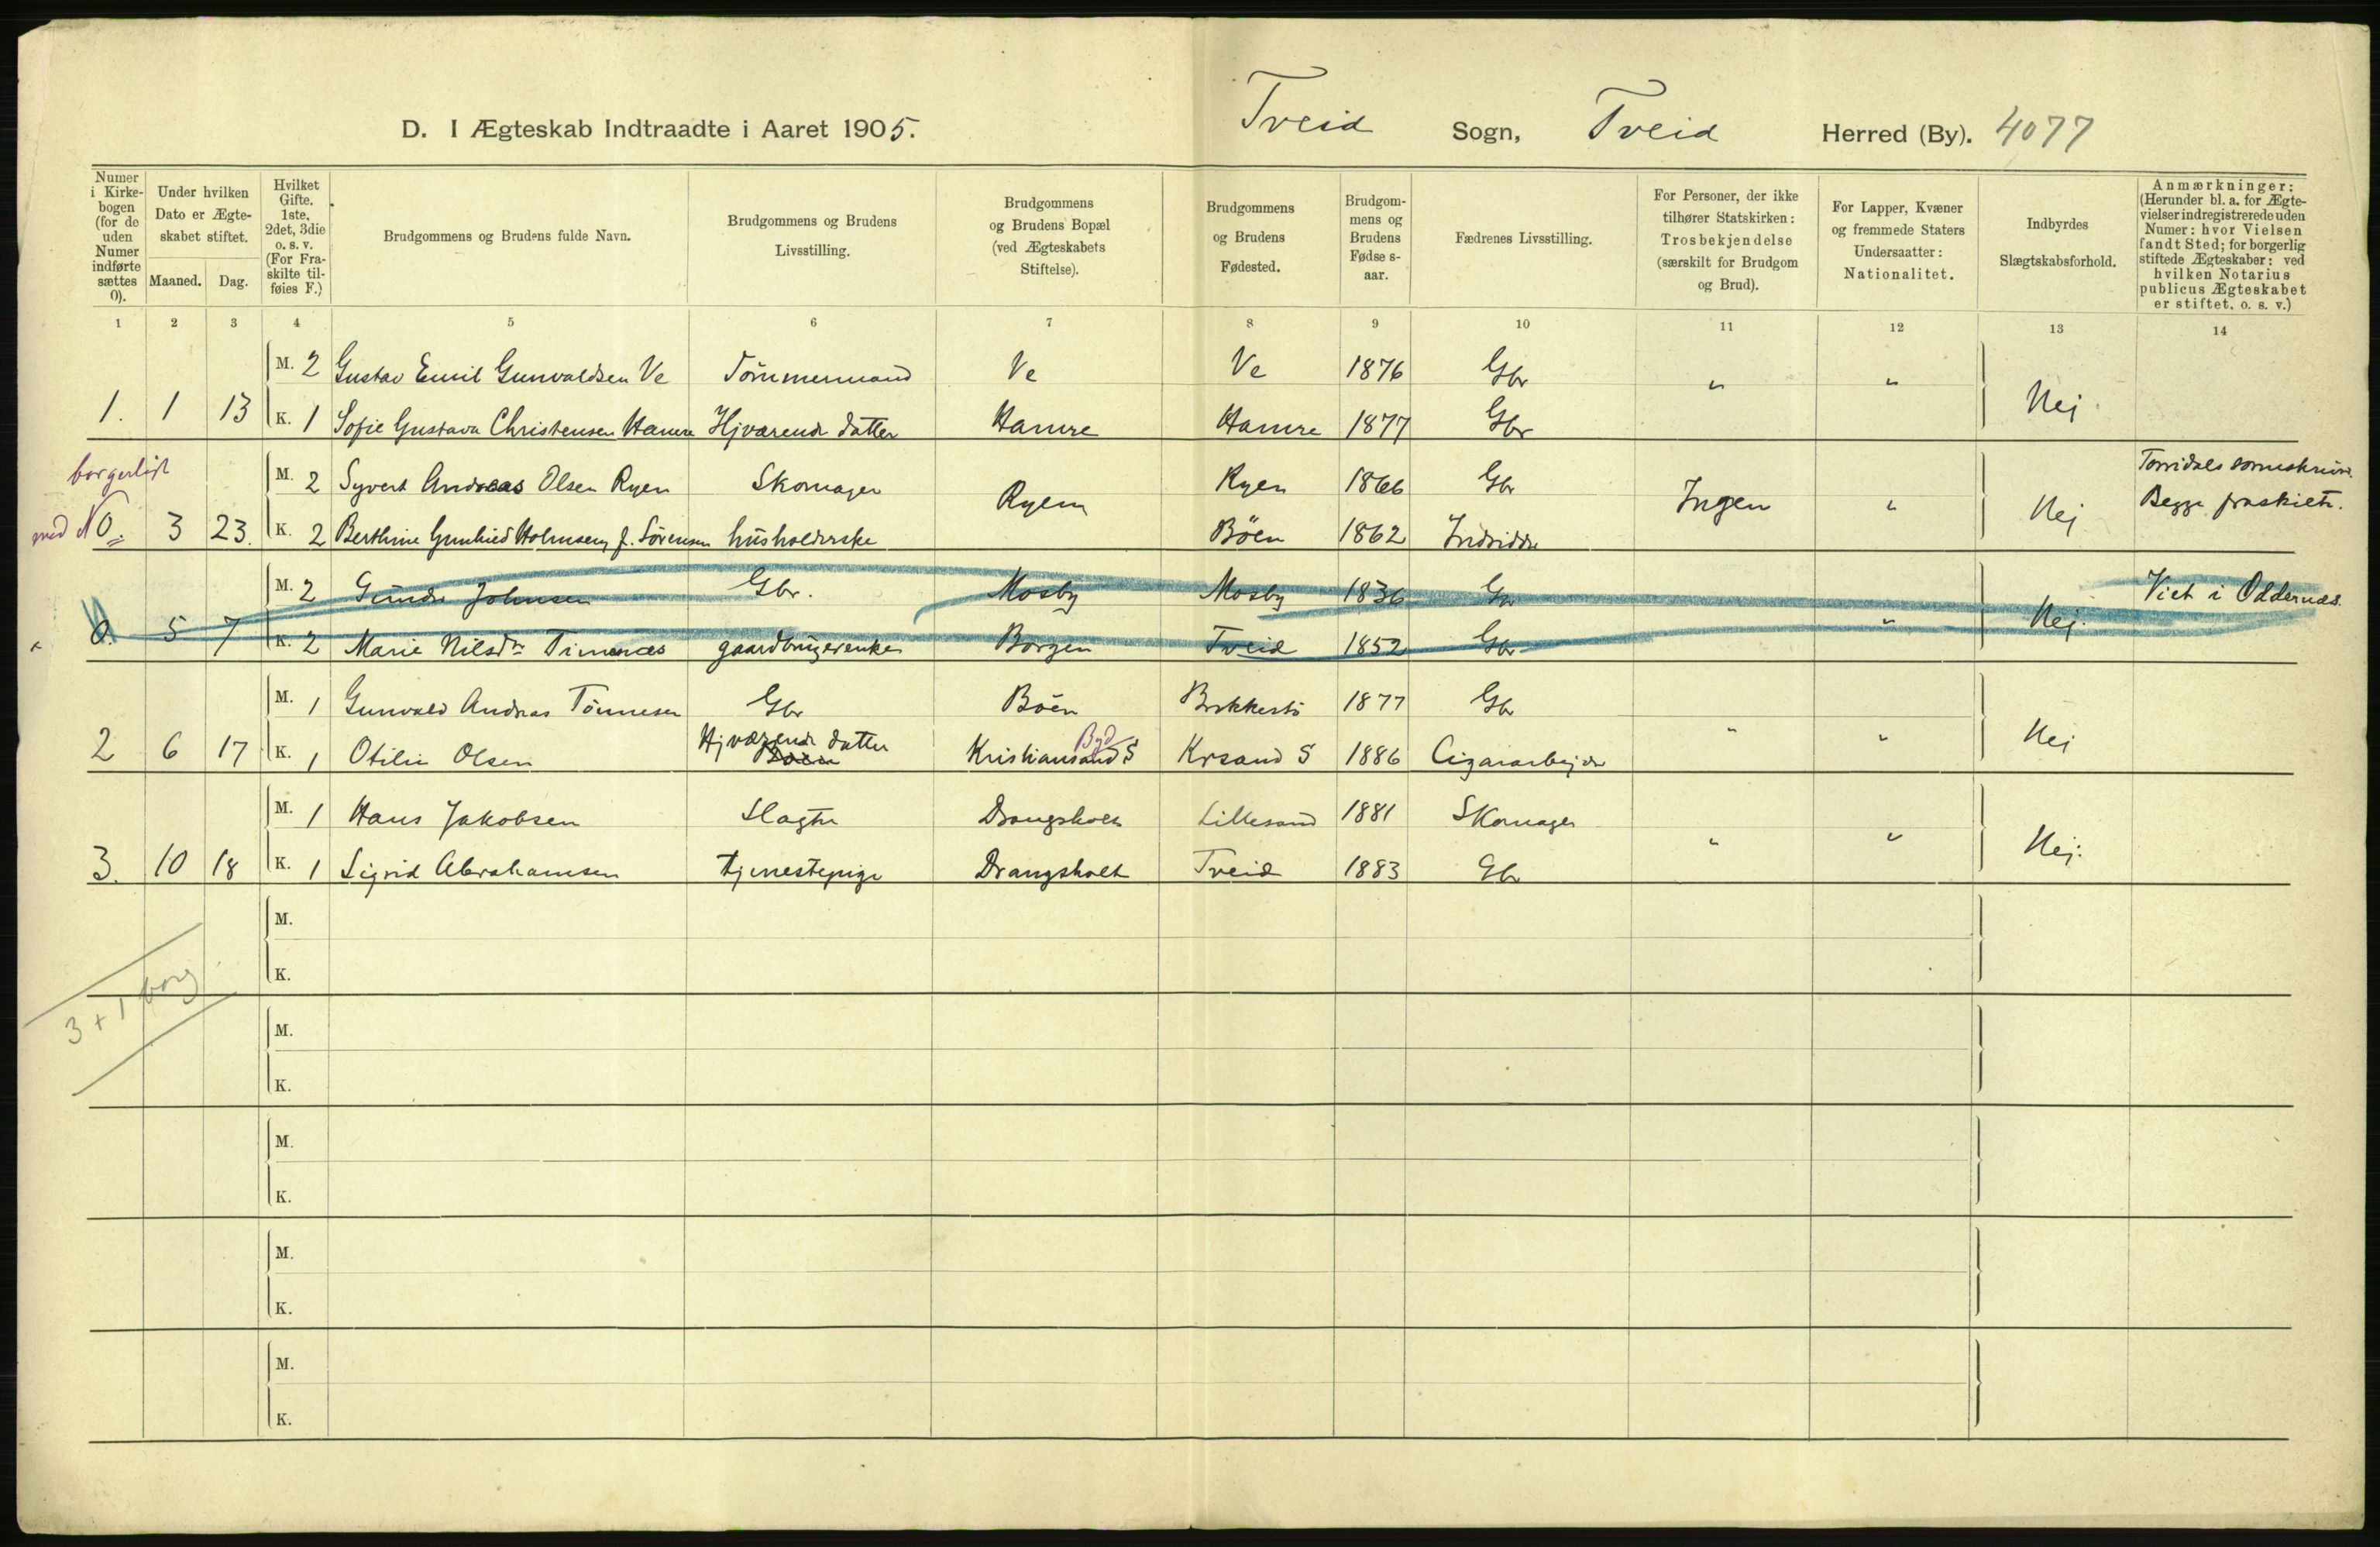 D. I Ægteskab Indtraadte i Aaret 1905.
Tveid Sogn, Tveid Herred (By). 4077
Numer i Kirkebogen (for de uden Numer indførte sættes 0).
Under hvilken Dato er Ægteskabet stiftet.
Maaned. Dag.
Hvilket Gifte. 1ste, 2det, 3die o. s. v. (For Fraskilte tilføies F.)
Brudgommens og Brudens fulde Navn.
Brudgommens og Brudens Livsstilling.
Brudgommens og Brudens Bopæl (ved Ægteskabets Stiftelse).
Brudgommens og Brudens Fødested.
Brudgommens og Brudens Fødse s-aar.
Fædrenes Livsstilling.
For Personer, der ikke tilhører Statskirken: Trosbekjendelse (særskilt for Brudgom og Brud).
For Lapper, Kvæner og fremmede Staters Undersaatter: Nationalitet.
Indbyrdes Slægtskabsforhold.
Anmærkninger: (Herunder bl. a. for Ægtevielser indregistrerede uden Numer: hvor Vielsen fandt Sted; for borgerlig stiftede Ægteskaber: ved hvilken Notarius publicus Ægteskabet er stiftet, o. s. v.)
1 2 3 4 5 6 7 8 9 10 11 12 13 14
M. 2 Gustav Emil Gunvaldsen Ve Tömmermand Ve Ve 1876 Gbr " "
1. 1 13 K. 1 Sofie Gustava Christensen Hamre Hjværende datter Hamre Hamre 1877 Gbr Nej
borgerligt M. 2 Syvert Andreas Olsen Ryen Skomager Ryen Ryen 1866 Gbr Ingen " Nej
Begge fraskilte.
med No 0. 3 23. K. 2 Berthine Gunhild Holmsen, f. Sörensen husholderske Böen 1862
M. 2 Gunder Johnsen Gbr. Mosby Mosby 1836 Gbr Viet i Oddernæs.
0. 5 7 K. 2 Marie Nilsdr Timenes gaardbrugerenke Borgen Tveid 1852 Gbr " Nej.
M. 1 Gunvald Andreas Tönnesen Gbr Böen Brekkestö 1877 Gbr " "
2 6 17 K. 1 Otilie Olsen Hjværende datter Böen Kristiansand S Byd Krsand S 1886 Cigararbejder Nej
M. 1 Hans Jakobsen Slagter Drangsholt Lillesand 1881 Skomager " "
3. 10 18 K. 1 Sigrid Abrahamsen tjenestepige Drangsholt Tveid 1883 Gbr Nej.
M.
K.
3 + 1 borg
M.
K.
M.
K.
M.
K.
M.
K.